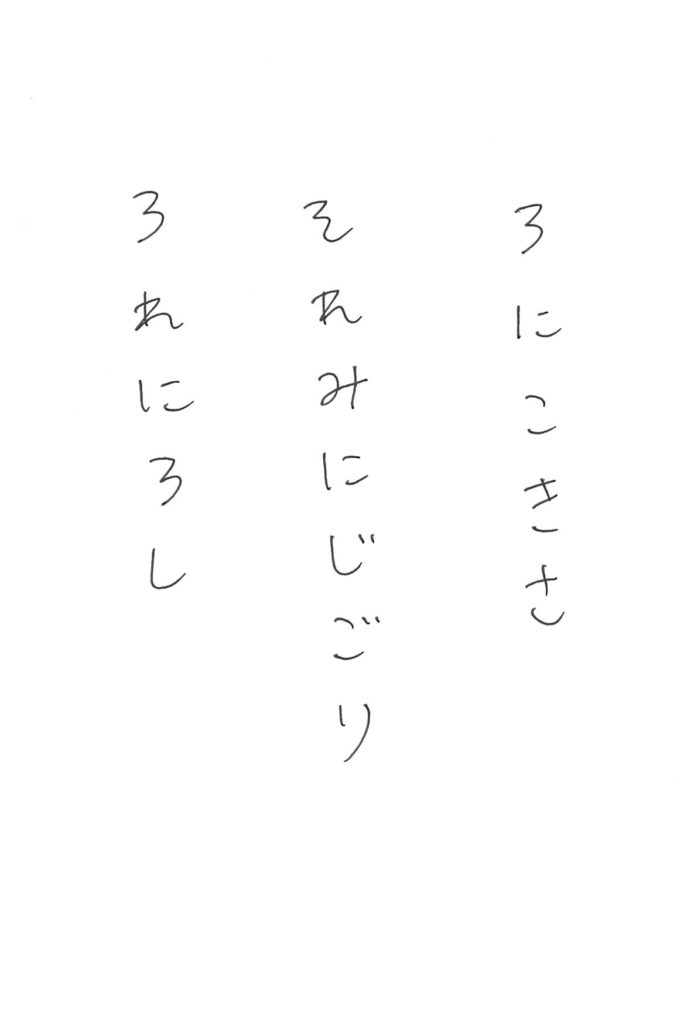 ろにこきさ
それみにじごり
ろれにろし